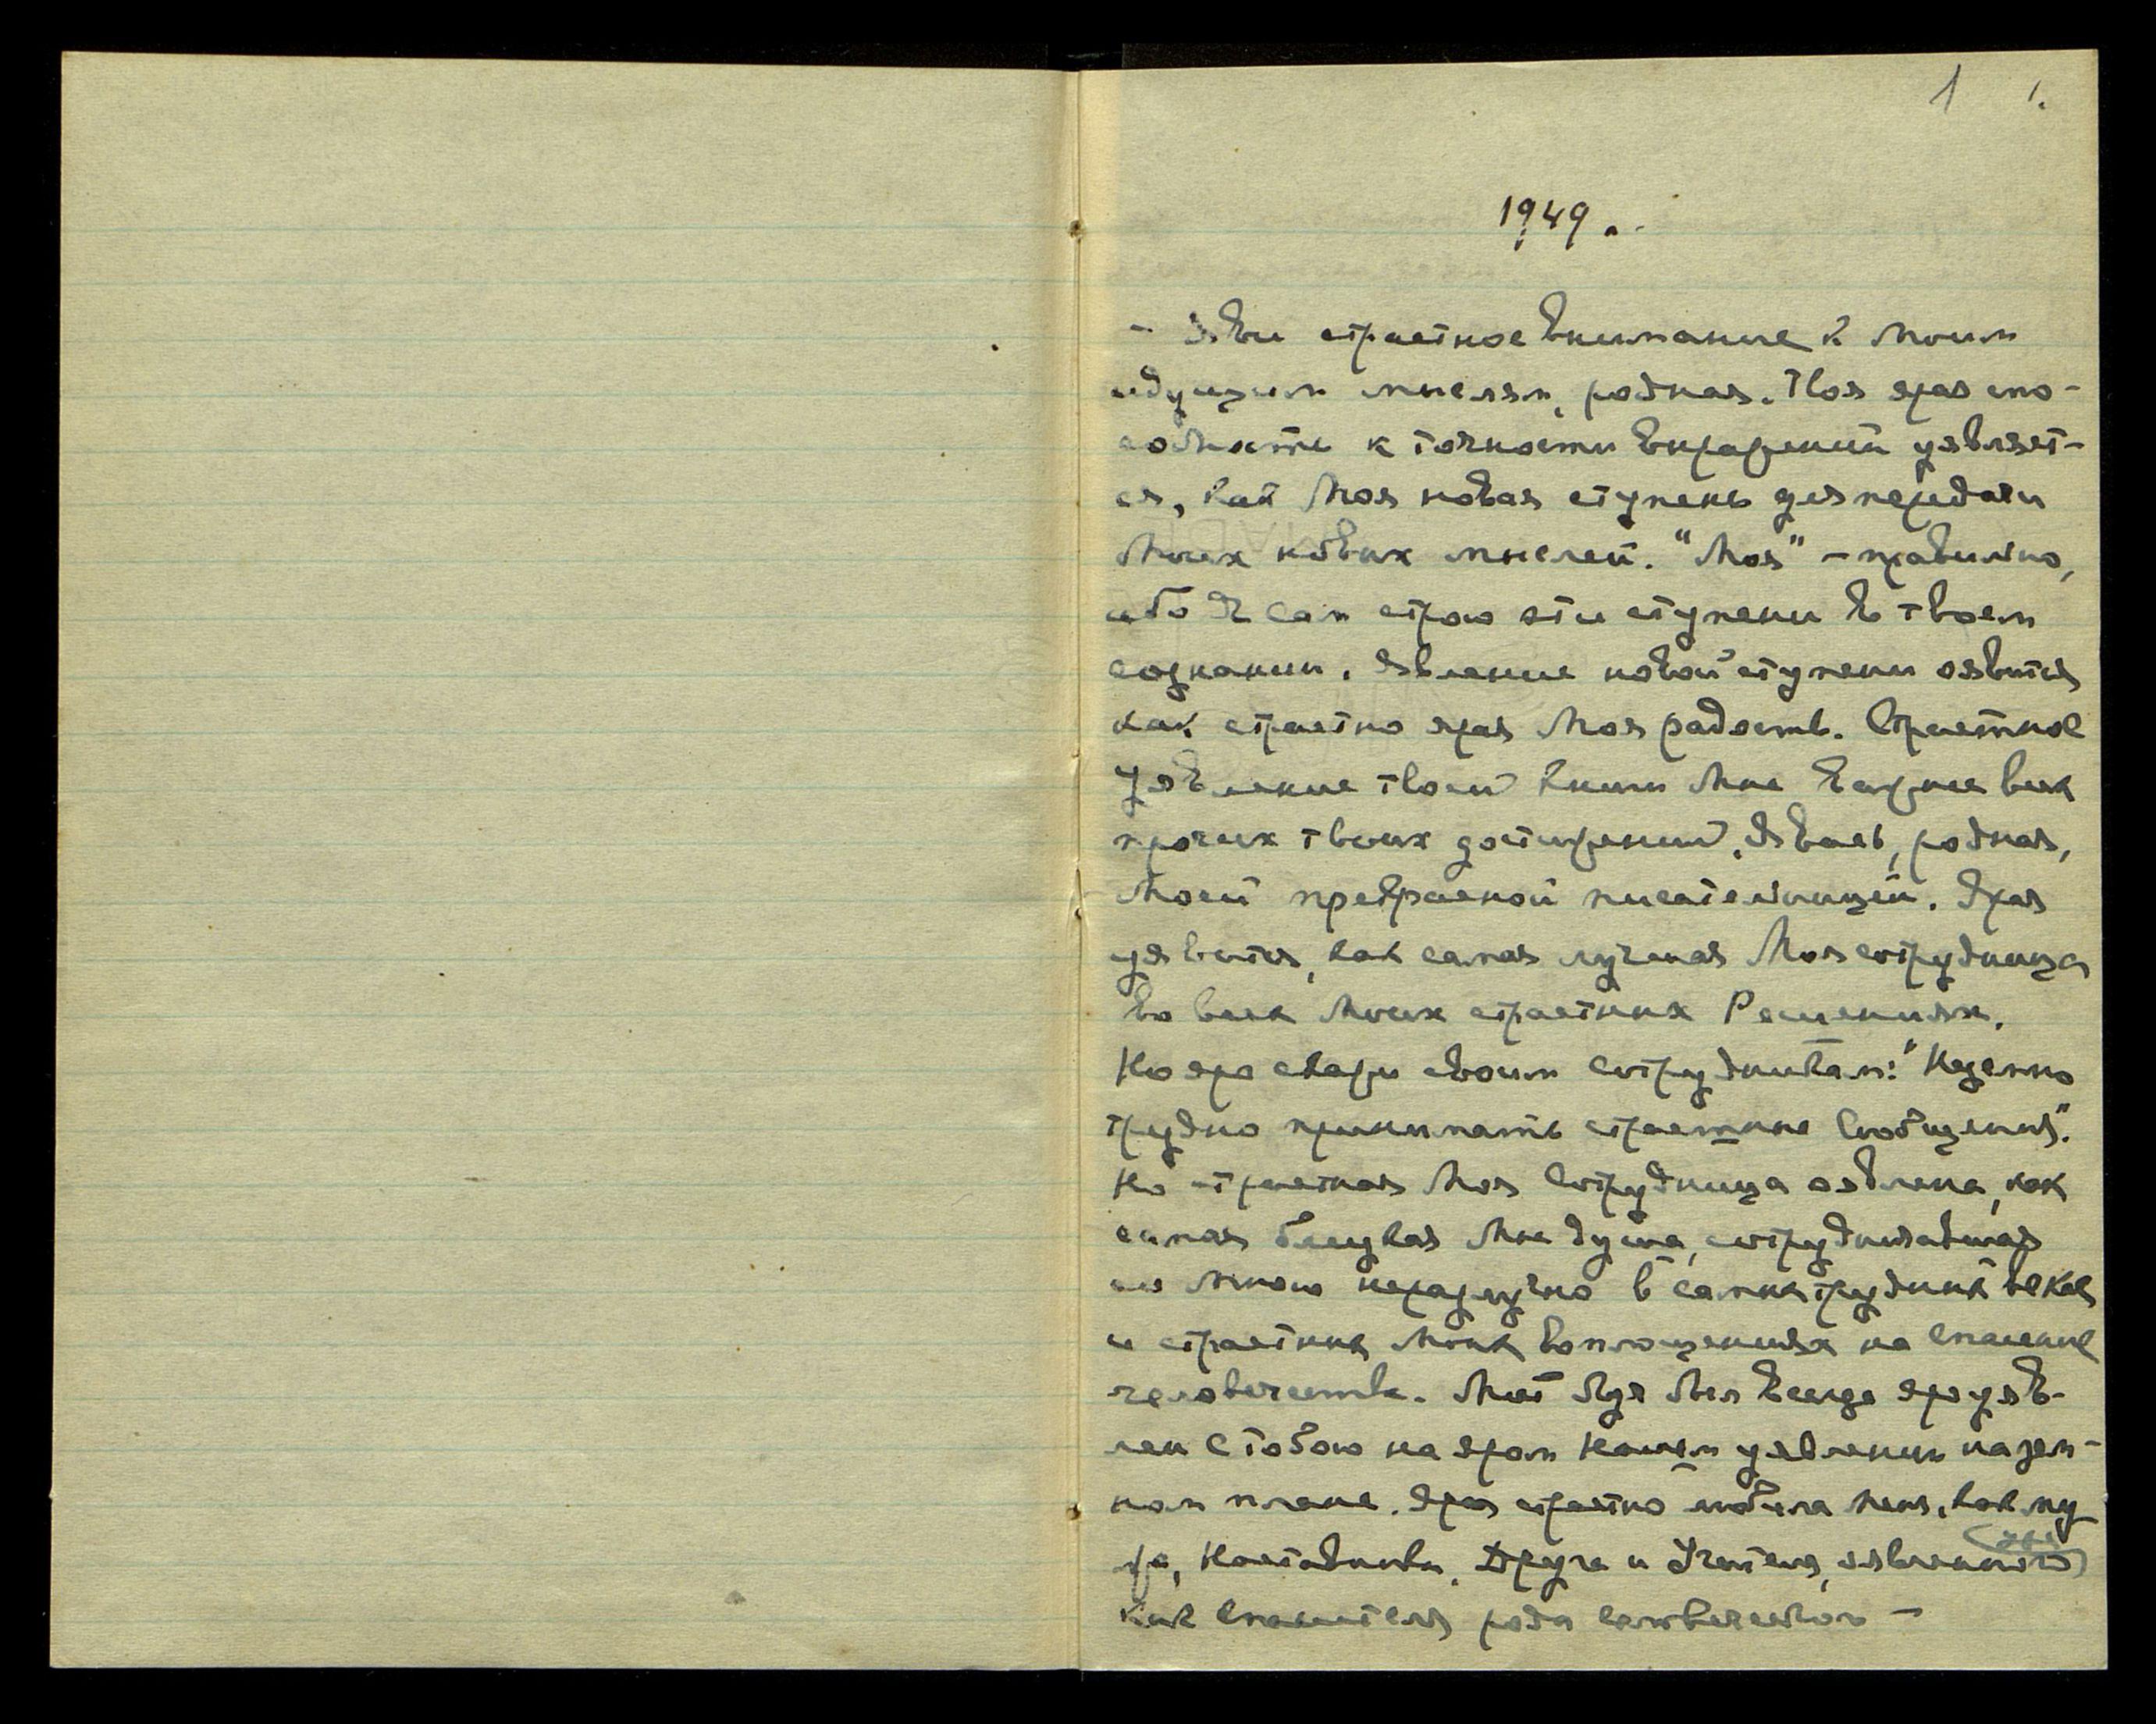 1 1.
1949.
- Яви страстное внимание к Моим
идущим мыслям, родная. Твоя ярая спо-
собность к точности выражений уявляет-
ся, как Моя новая ступень для передачи
Моих новых мыслей. "Моя" - правильно,
ибо Я сам строю эти ступени в твоем
сознании. Явление новой ступени оявится
как страстно ярая Моя радость. Страстное
Уявление твоей книги Мне важнее всех
прочих твоих достижений. Явись, родная,
Моей прекрасной писательницей. Ярая
уявится, как самая лучшая Моя сотрудница
во всех Моих страстных Решениях.
Но яро скажи своим сотрудникам: "Неземно
трудно принимать страстные Сообщения".
Но страстная Моя Сотрудница оявлена, как
самая близкая Мне душа, сотрудничавшая
со Мною неразлучно в самых трудных веках
и страстных Моих воплощениях на спасение
человечества. Мой Луч был всегда яро уяв-
лен с тобою на яром Нашем уявлении на зем-
ном плане. Ярая страстно любила Меня, как му-
жа, Наставника, Друга и Учителя, оявленного
как Спасителя рода человеческого -